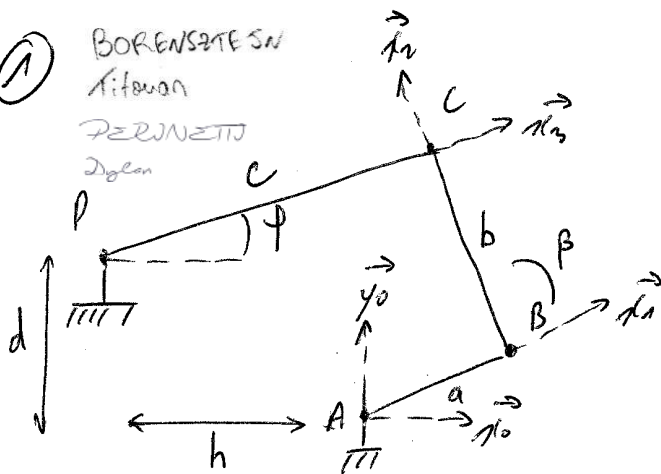 1
BORENSZTEJN
Titouan
PERINETTI
Dylan
x2
C
x3
c
P
φ
b
β
d
y0
B
x1
A
a
x0
h